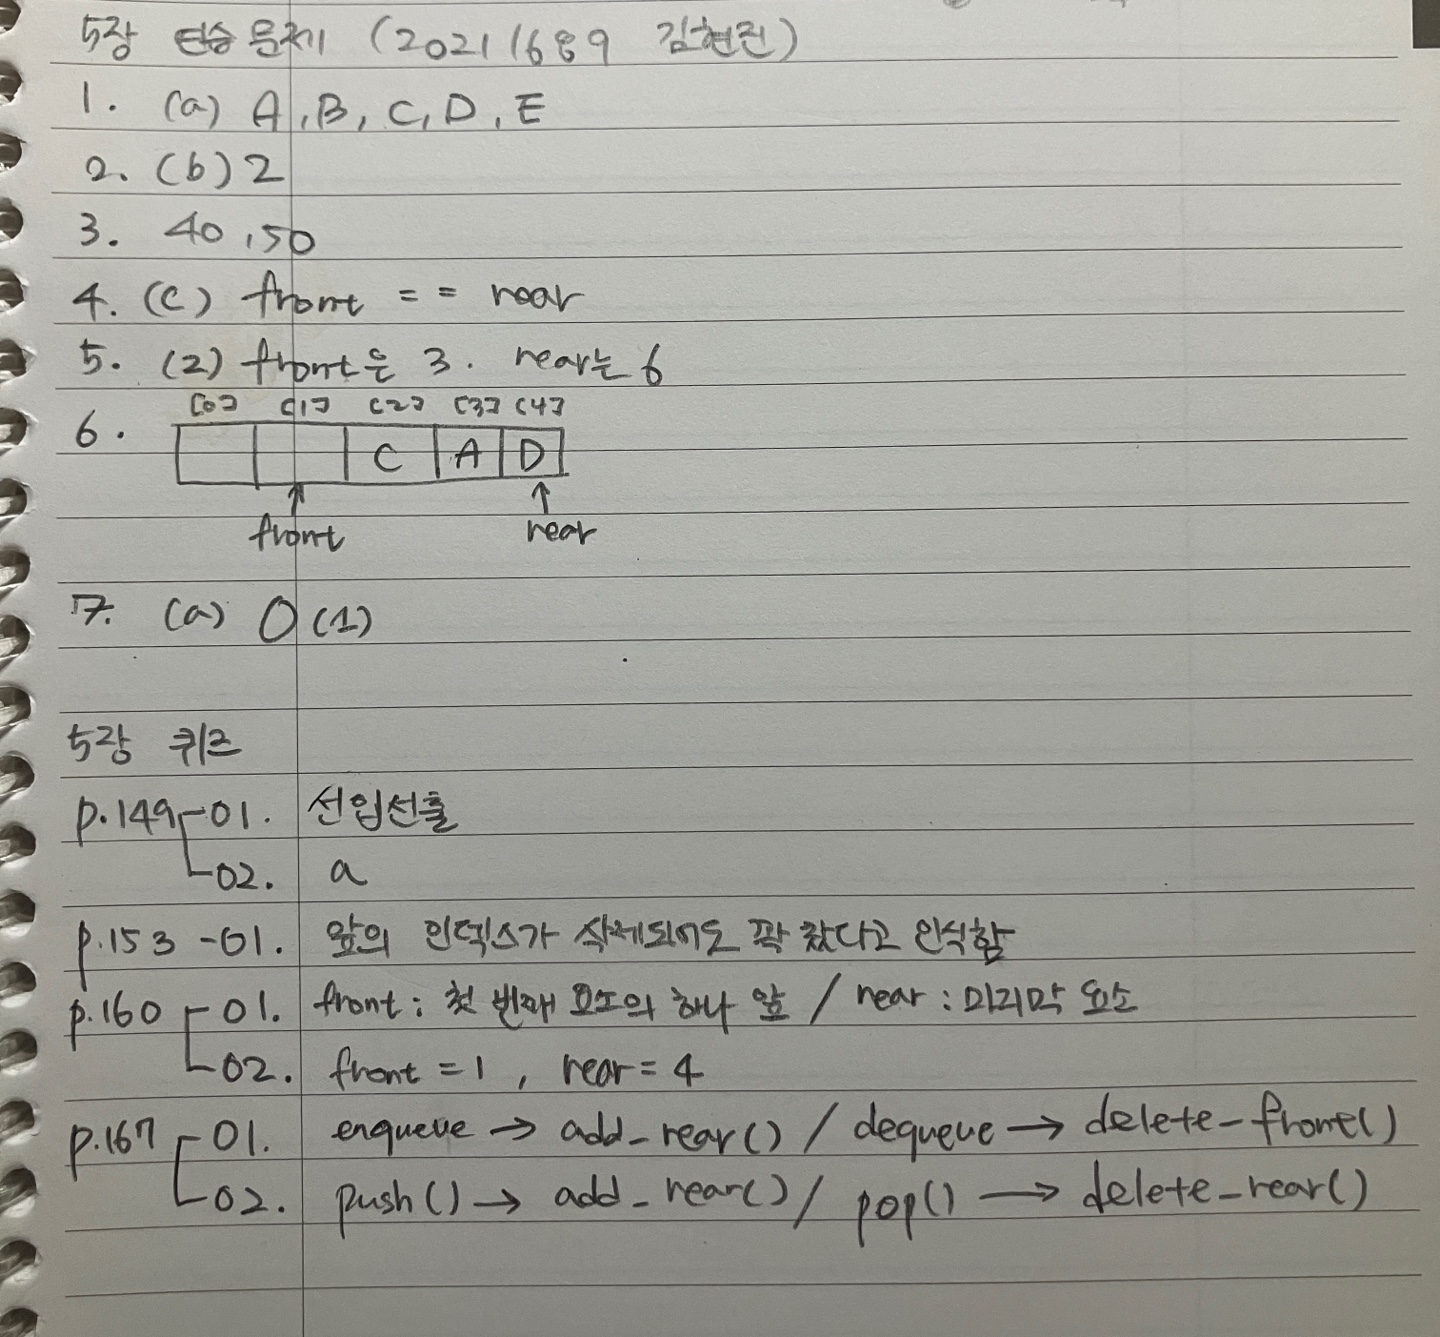 5장 연습문제 (20211689 김현진)
1. (a) A, B, C, D, E
2. (b) 2
3. 40, 50
4. (c) front == rear
5. (2) front은 3. rear는 6
[0] [1] [2] [3] [4]
6. C A D
front rear
7. (a) O(1)
5장 퀴즈
p.149 -01. 선입선출
-02. a
p.153 -01. 앞의 인덱스가 삭제되어도 꽉 찼다고 인식함
p.160 -01. front : 첫 번째 요소의 하나 앞 / rear : 마지막 요소
-02. front = 1, rear = 4
p.167 -01. enqueue → add_rear() / dequeue → delete-front()
-02. push() → add_rear() / pop() → delete_rear()